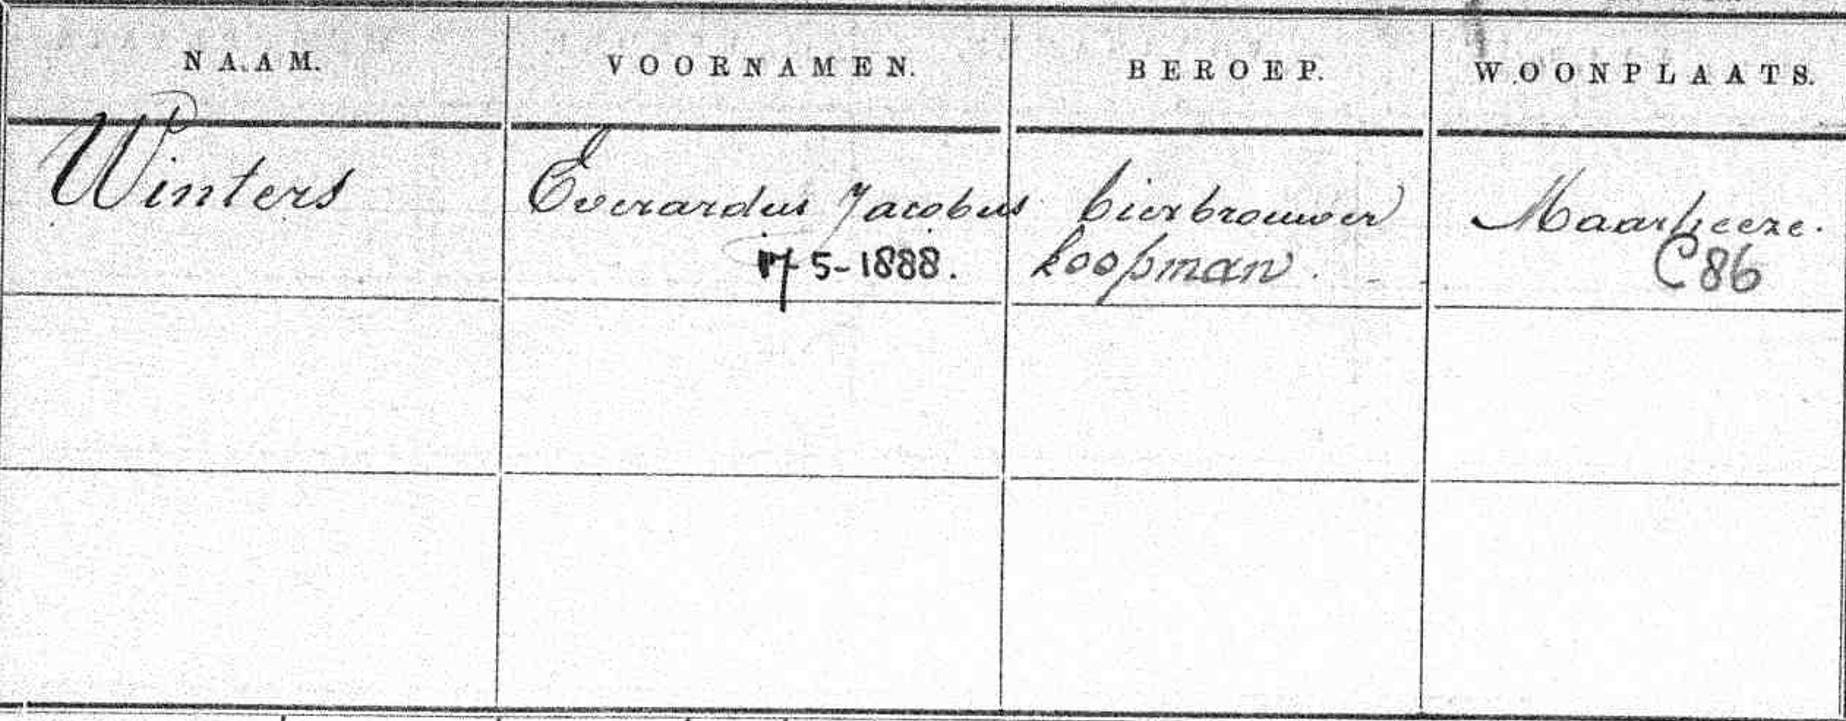 NAAM. VOORNAMEN. BEROEP. WOONPLAATS.
Winters Everardus Jacobus bierbrouwer Maarheeze.
17-5-1888. koopman. C86